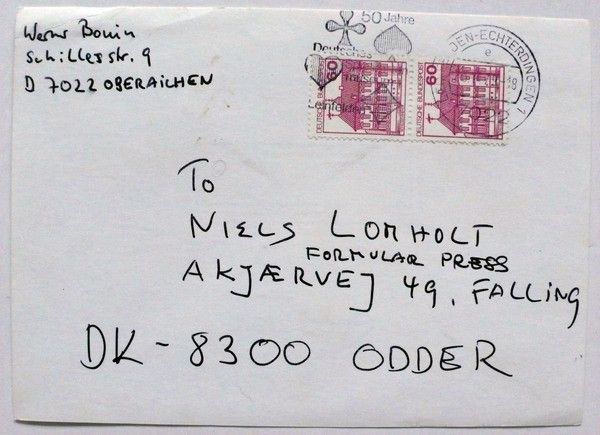 Werner Bonin
Schillerstr. 9
D 7022 OBERAICHEN
50 Jahre
Deutsches
Leinfelden
DEN-ECHTERDINGEN 1
e
60
DEUTSCHE BUNDESPOST
60
DEUTSCHE BUNDESPOST
To
NIELS LOMHOLT
FORMULAR PRESS
AKJÆRVEJ 49, FALLING
DK-8300 ODDER